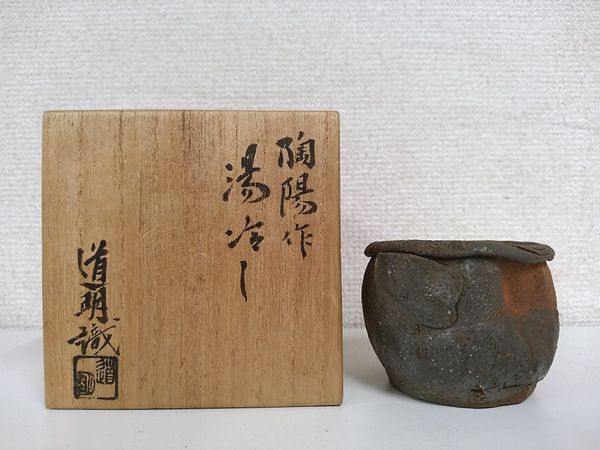 陶陽作
湯冷し
道明識